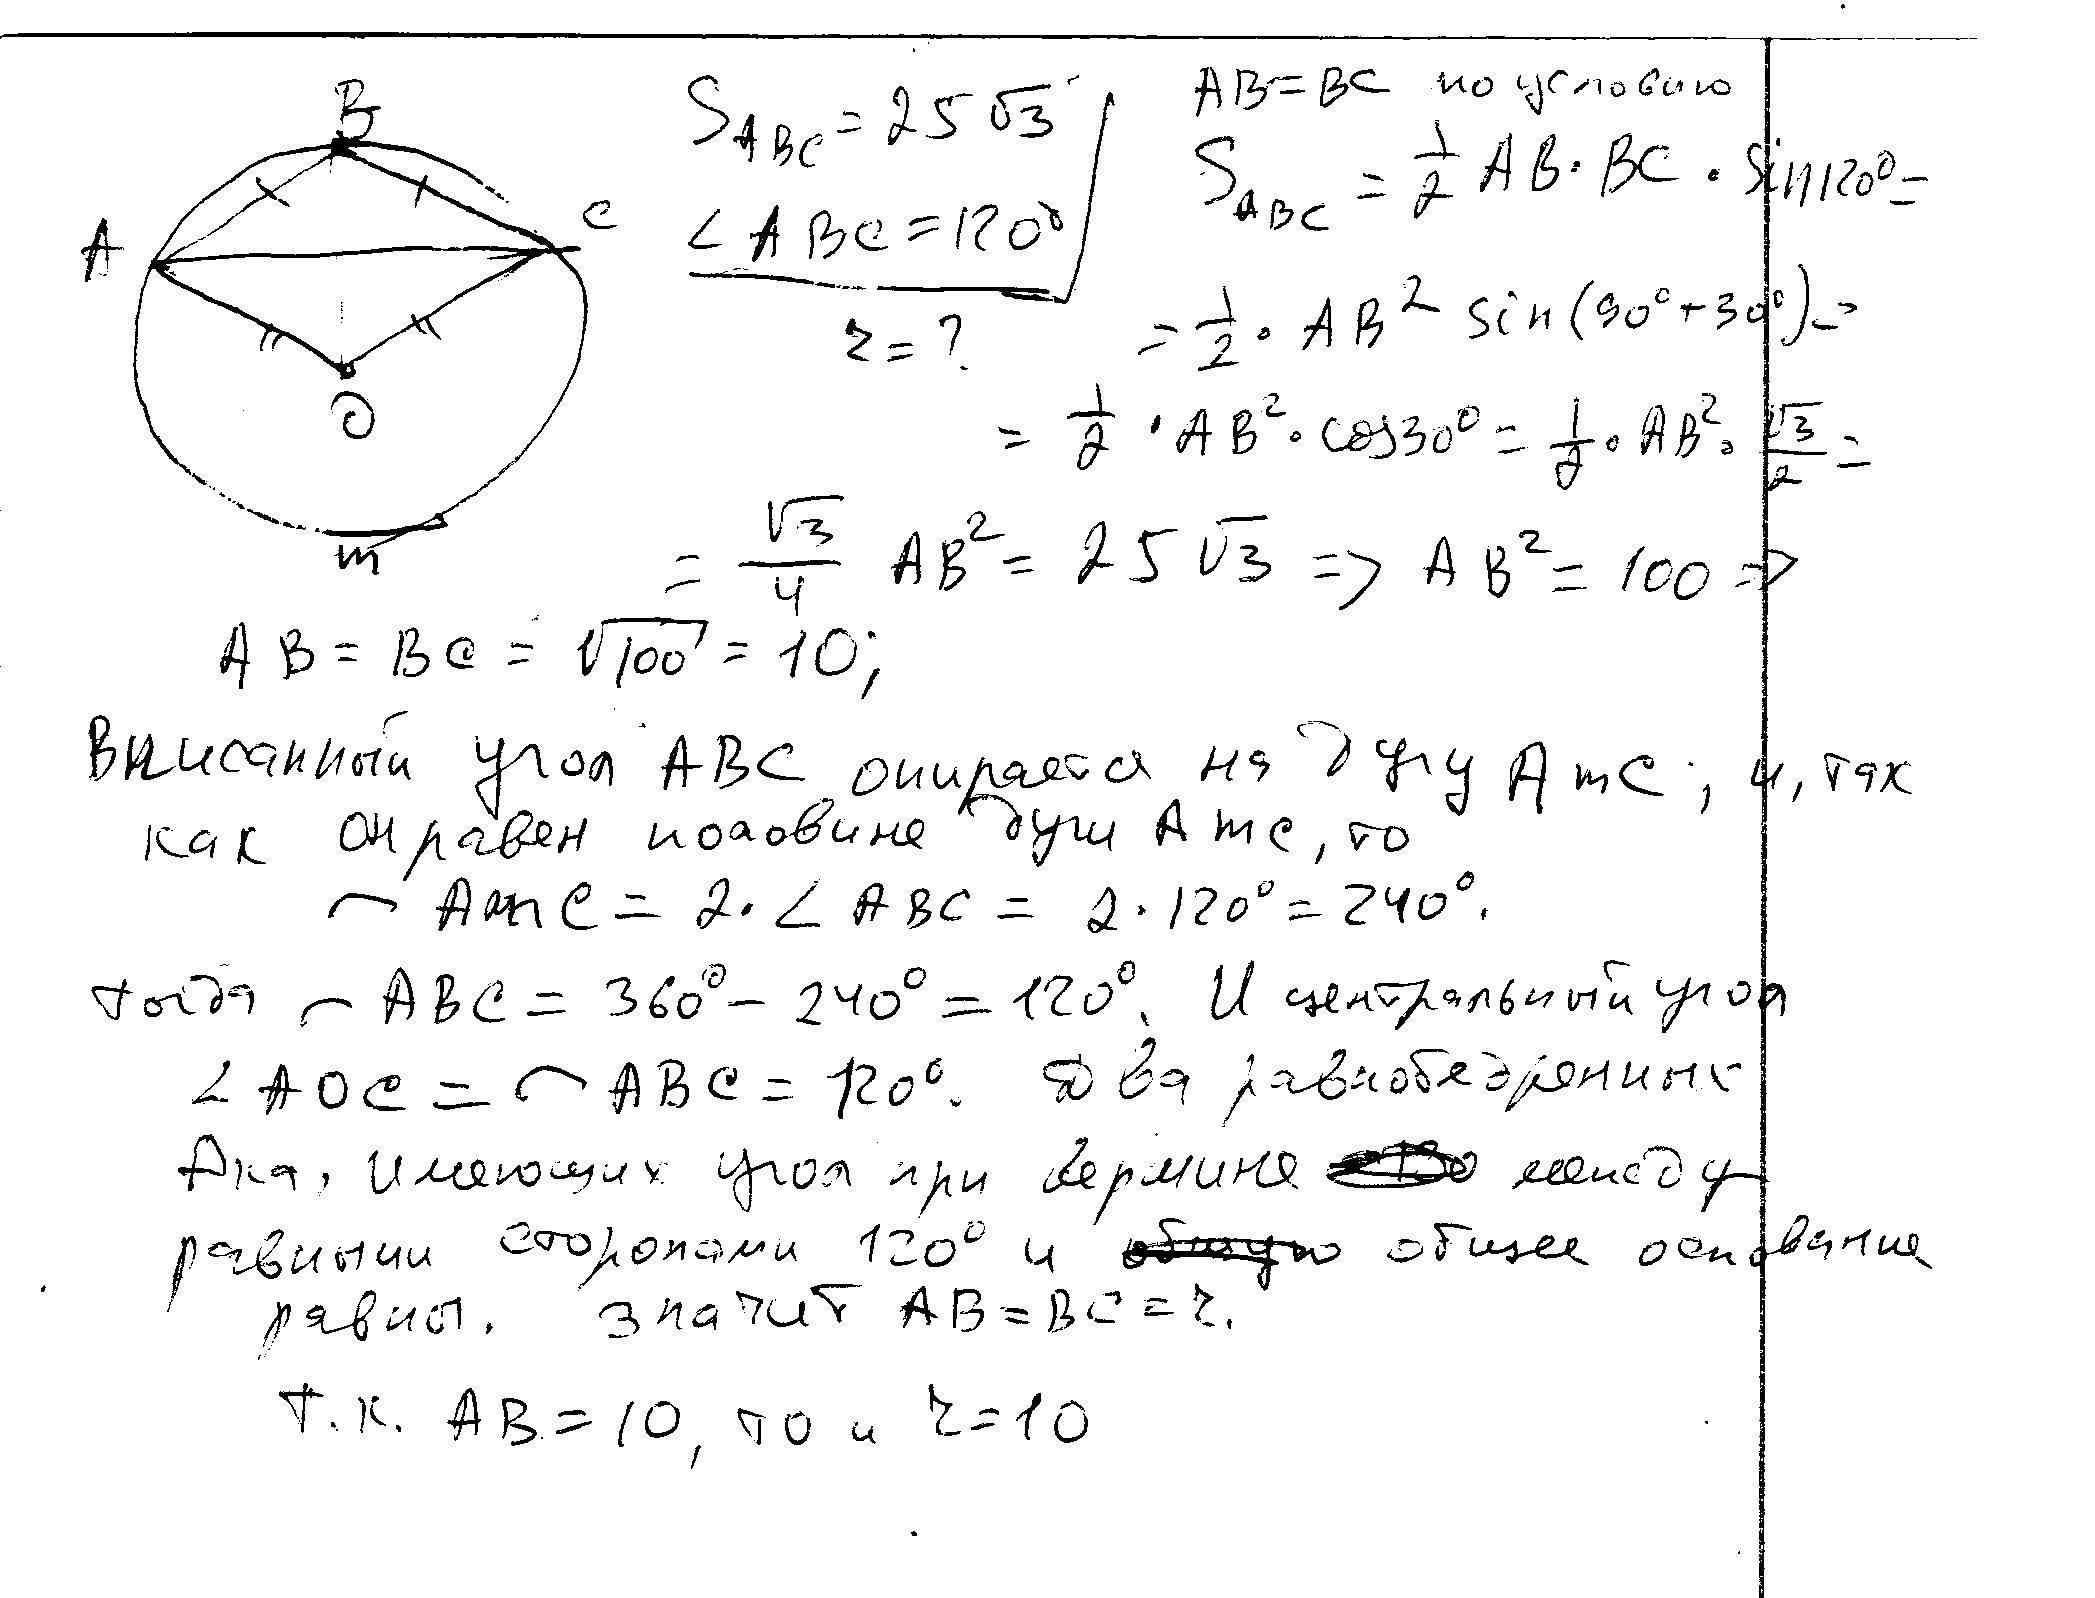 B
A
C
O
m
S_ABC = 25√3
∠ABC = 120°
r = ?
AB = BC по условию
S_ABC = 1/2 AB · BC · sin120° =
= 1/2 · AB² sin(90° + 30°) =
= 1/2 · AB² · cos30° = 1/2 · AB² · √3/2 =
= √3/4 AB² = 25√3 => AB² = 100 =>
AB = BC = √100 = 10;
Вписанный угол ABC опирается на дугу AmC; и, так
как он равен половине дуги AmC, то
⌒ AmC = 2 · ∠ABC = 2 · 120° = 240°.
тогда ⌒ ABC = 360° - 240° = 120°. И центральный угол
∠AOC = ⌒ ABC = 120°. Два равнобедренных
Δка, имеющих угол при вершине между
равными сторонами 120° и общее основание
равны. значит AB = BC = r.
т.к. AB = 10, то и r = 10